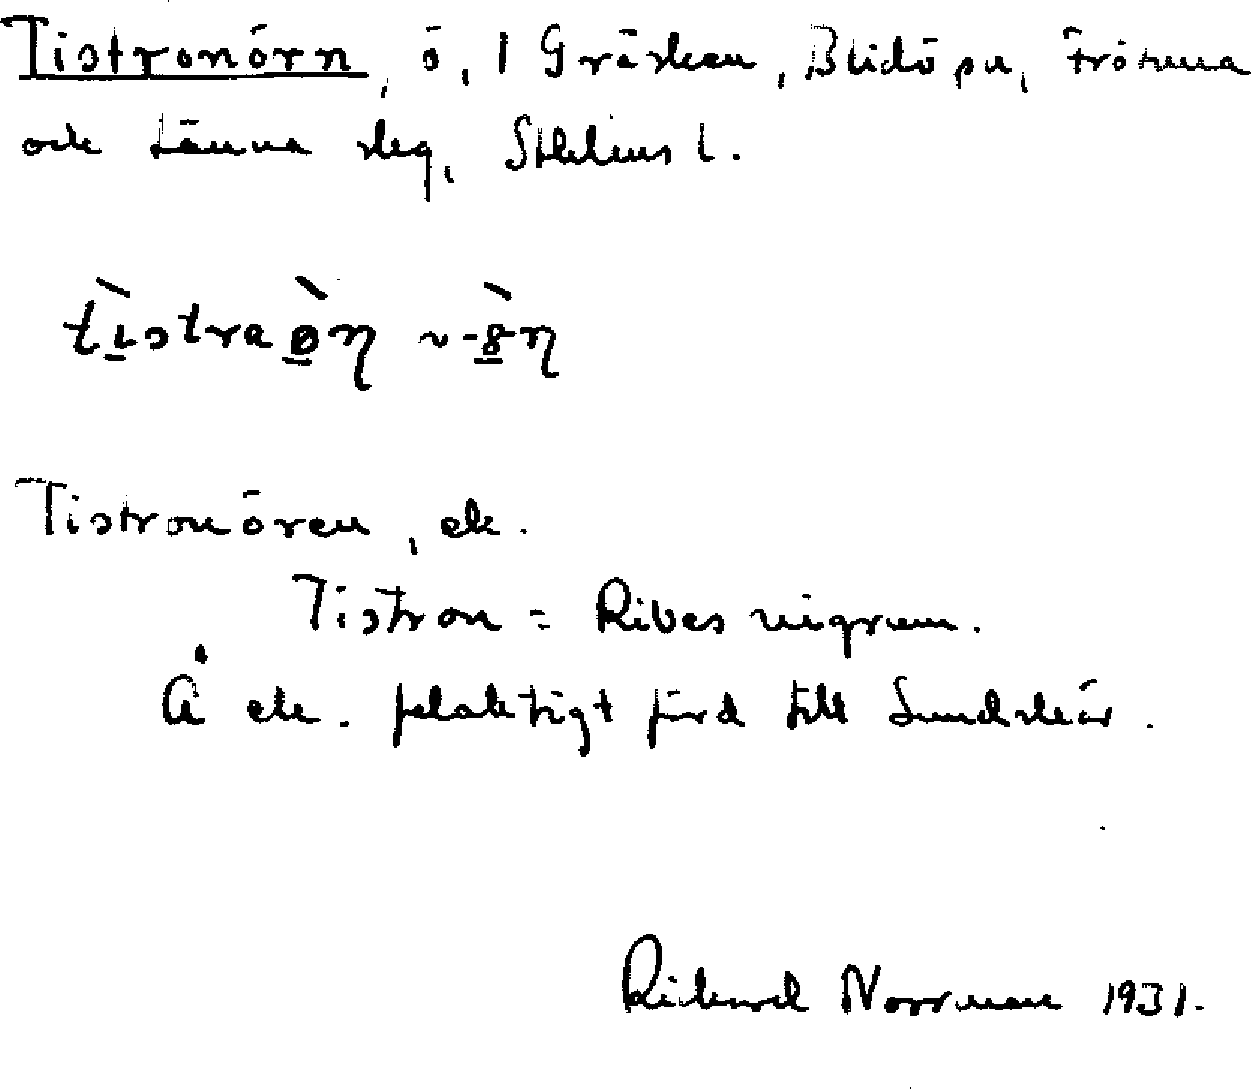 Tistronörn, ö, 1 Gräskan, Blidö sn, Frötuna
och Länna skg, Sthlms l.
tɩ̀straø̀n ~ -8̀n
Tistronören, ek.
Tistron = Ribes nigrum.
Å ek. felaktigt förd till Sundskär.
Rickard Norrman 1931.